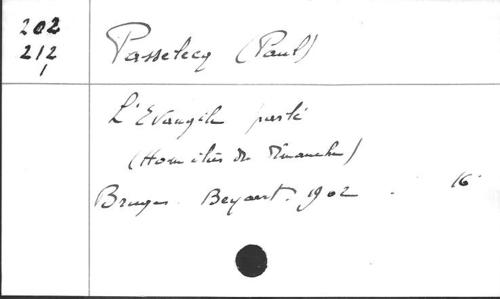 202
212
1
Passelecq (Paul)
L'Evangile parlé
(Homélies du Dimanche)
Bruges. Beyaert. 1902. 16°